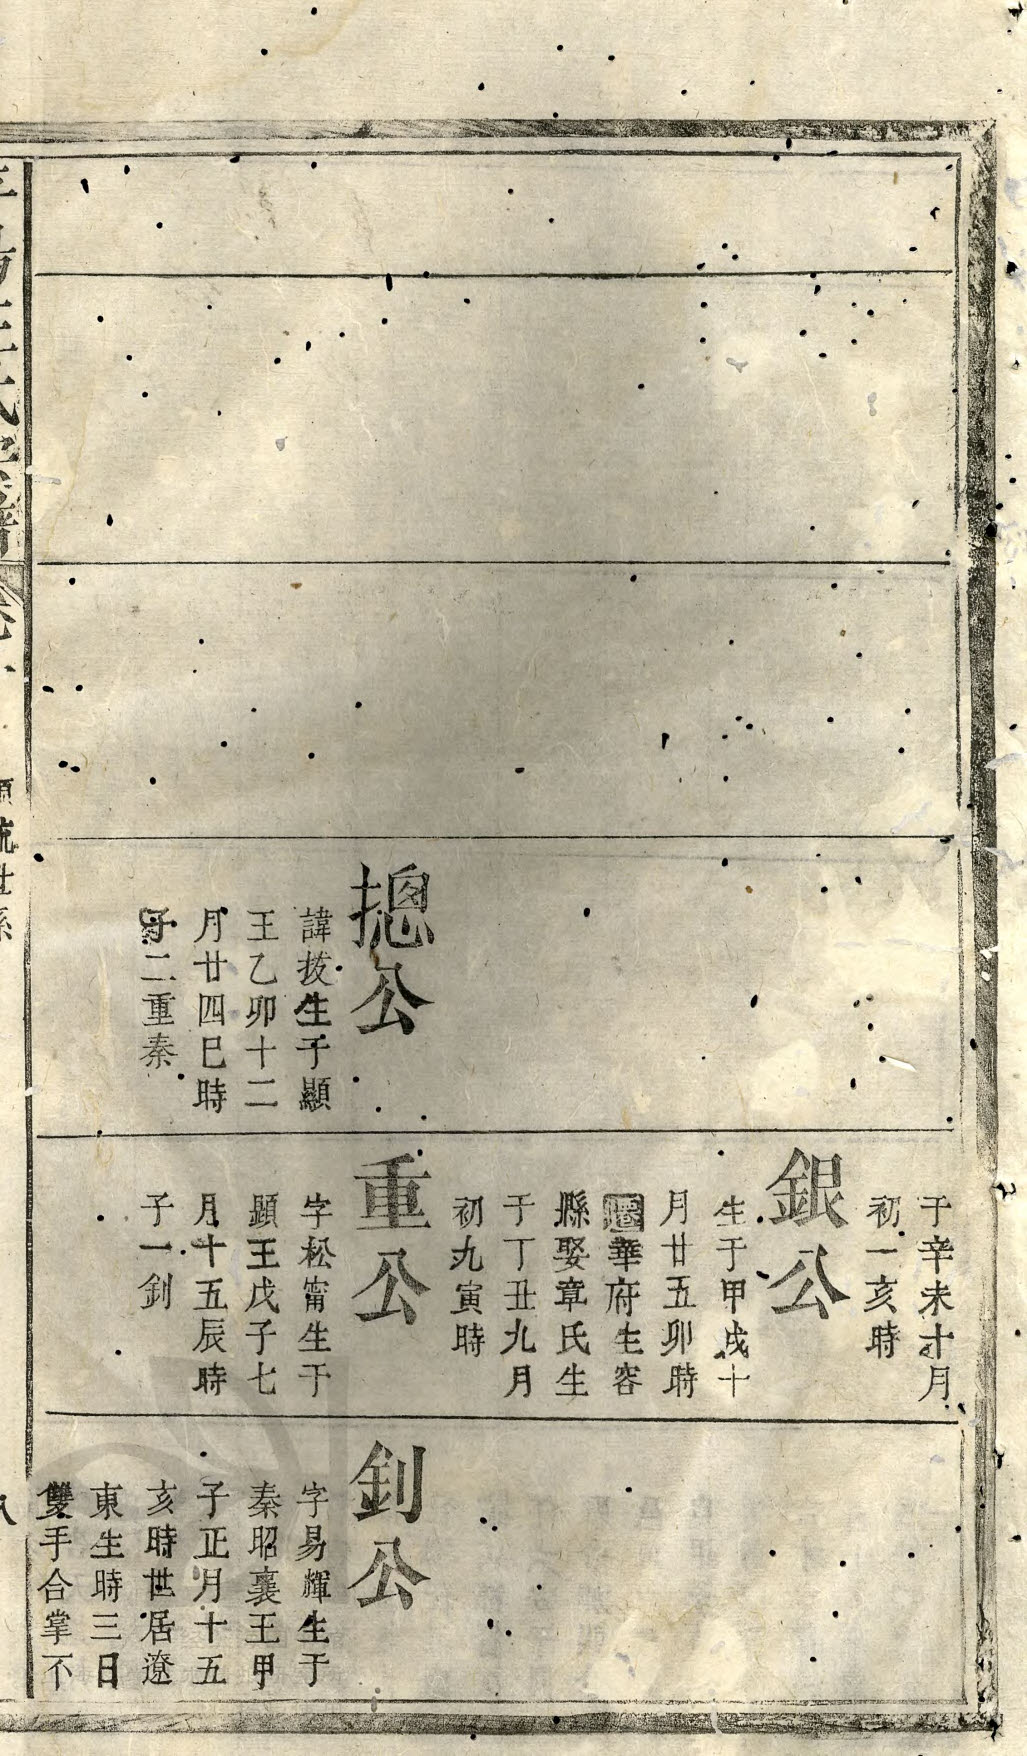 摠公
諱拔生于顯
王乙卯十二
月廿四巳時
子二重秦
于辛未十月
初一亥時
銀公
生于甲戌十
月廿五卯時
遷華府生容
縣娶章氏生
于丁丑九月
初九寅時
重公
字松甯生于
顯王戊子七
月十五辰時
子一釗
釗公
字易輝生于
秦昭襄王甲
子正月十五
亥時世居遼
東生時三日
雙手合掌不
氏宗譜
統世系
八